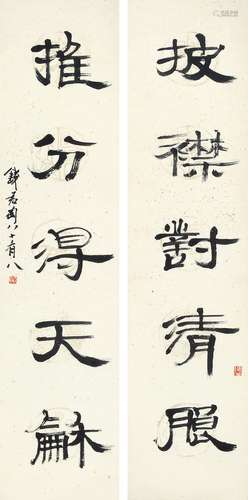 披襟對清
推分得天龢
錢君匋八十有八